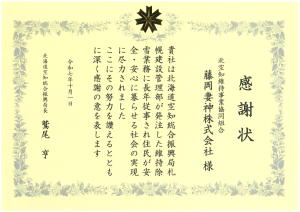 感謝状
北空知維持事業協同組合
藤岡妻神株式会社 様
貴社は北海道空知総合振興局札
幌建設管理部が発注した維持除
雪業務に長年従事され住民が安
全・安心に暮らせる社会の実現
に尽力されました
ここにその努力を讃えるととも
に深く感謝の意を表します
令和七年十月一日
北海道空知総合振興局長
鷲尾 亨